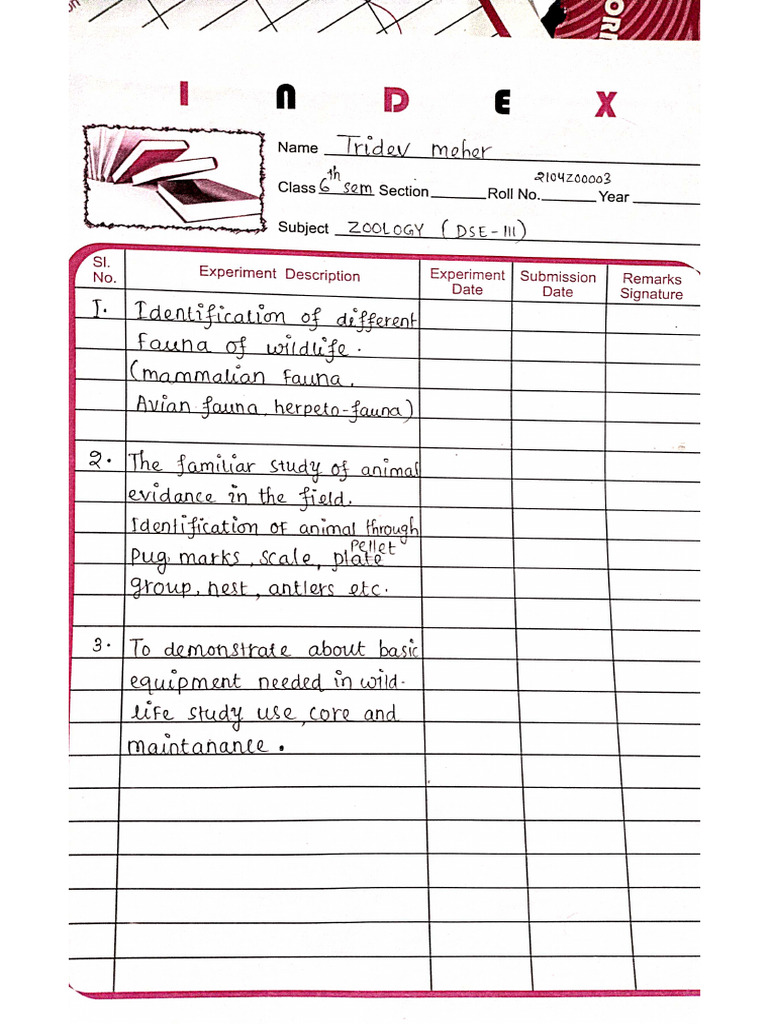 ORI
I N D E X
Name Tridev meher
Class 6th sem Section Roll No. 2104Z00003 Year
Subject ZOOLOGY (DSE-III)
Sl. No. Experiment Description Experiment Date Submission Date Remarks Signature
1. Identification of different
Fauna of wildlife.
(mammalian Fauna,
Avian fauna, herpeto-fauna)
2. The familiar study of animal
evidance in the field.
Identification of animal through
Pug marks, scale, plate pellet
group, nest, antlers etc.
3. To demonstrate about basic
equipment needed in wild-
life study use, core and
maintanance.